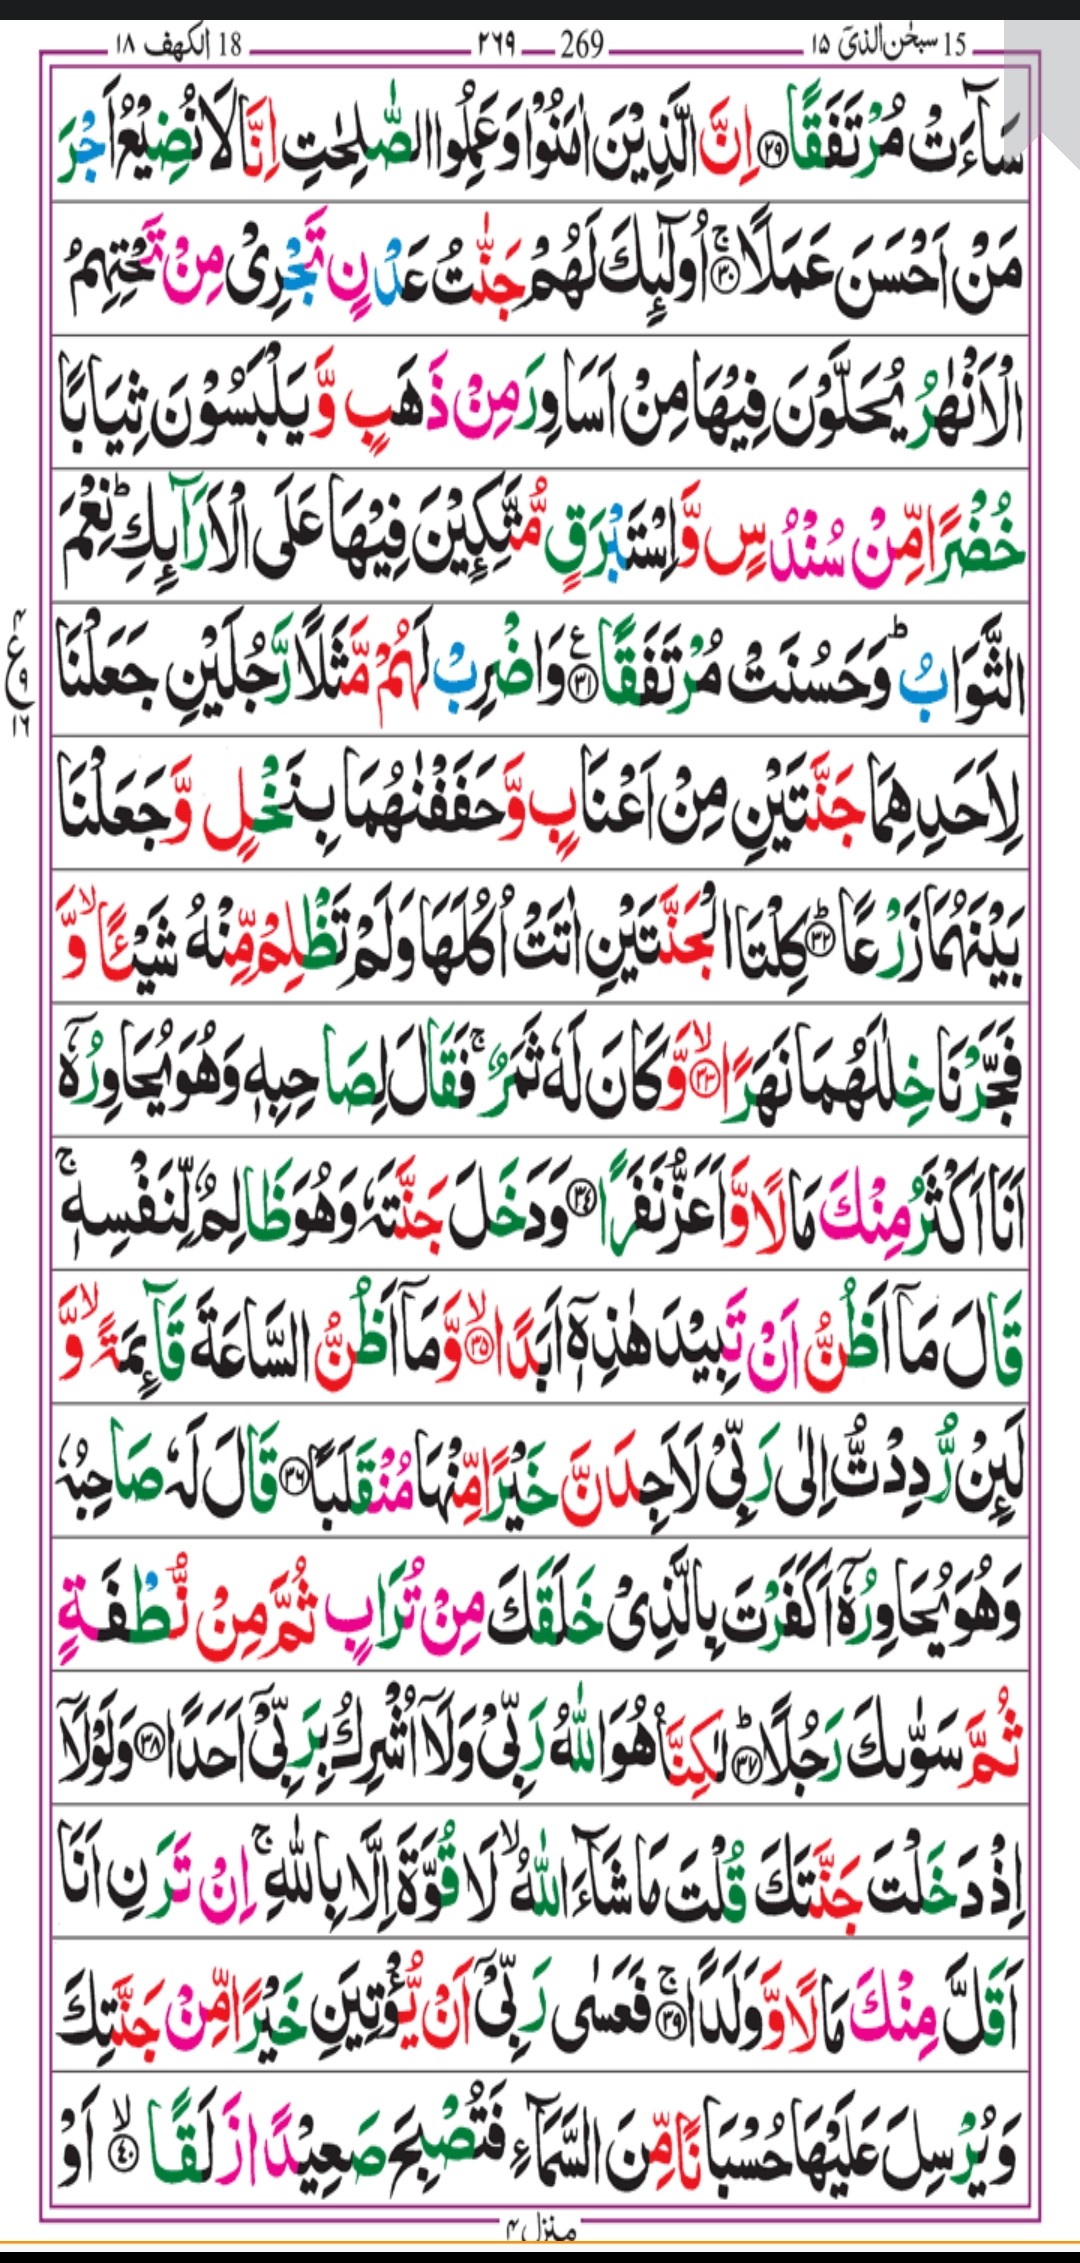 15 سبحٰن الذیٓ ۱۵ 269 ۲۶۹ 18 الکهف ۱۸
سَآءَتْ مُرْتَفَقًا ۲۹ اِنَّ الَّذِیْنَ اٰمَنُوْا وَعَمِلُوا الصّٰلِحٰتِ اِنَّا لَا نُضِیْعُ اَجْرَ
مَنْ اَحْسَنَ عَمَلًا ۚ ۳۰ اُولٰٓئِكَ لَهُمْ جَنّٰتُ عَدْنٍ تَجْرِیْ مِنْ تَحْتِهِمُ
الْاَنْهٰرُ یُحَلَّوْنَ فِیْهَا مِنْ اَسَاوِرَ مِنْ ذَهَبٍ وَّیَلْبَسُوْنَ ثِیَابًا
خُضْرًا مِّنْ سُنْدُسٍ وَّاِسْتَبْرَقٍ مُّتَّكِئِیْنَ فِیْهَا عَلَی الْاَرَآئِكِ ؕ نِعْمَ
الثَّوَابُ ؕ وَحَسُنَتْ مُرْتَفَقًا ۳۱ ع وَاضْرِبْ لَهُمْ مَّثَلًا رَّجُلَیْنِ جَعَلْنَا
۴ ع ۹ ۱۶
لِاَحَدِهِمَا جَنَّتَیْنِ مِنْ اَعْنَابٍ وَّحَفَفْنٰهُمَا بِنَخْلٍ وَّجَعَلْنَا
بَیْنَهُمَا زَرْعًا ؕ ۳۲ كِلْتَا الْجَنَّتَیْنِ اٰتَتْ اُكُلَهَا وَلَمْ تَظْلِمْ مِّنْهُ شَیْـًٔا ۙ وَّ
فَجَّرْنَا خِلٰلَهُمَا نَهَرًا ۙ ۳۳ وَّكَانَ لَهٗ ثَمَرٌ ۚ فَقَالَ لِصَاحِبِهٖ وَهُوَ یُحَاوِرُهٗۤ
اَنَا اَكْثَرُ مِنْكَ مَالًا وَّاَعَزُّ نَفَرًا ۳۴ وَدَخَلَ جَنَّتَهٗ وَهُوَ ظَالِمٌ لِّنَفْسِهٖ ۚ
قَالَ مَاۤ اَظُنُّ اَنْ تَبِیْدَ هٰذِهٖۤ اَبَدًا ۙ ۳۵ وَّمَاۤ اَظُنُّ السَّاعَةَ قَآئِمَةً ۙ وَّ
لَئِنْ رُّدِدْتُّ اِلٰی رَبِّیْ لَاَجِدَنَّ خَیْرًا مِّنْهَا مُنْقَلَبًا ۳۶ قَالَ لَهٗ صَاحِبُهٗ
وَهُوَ یُحَاوِرُهٗۤ اَكَفَرْتَ بِالَّذِیْ خَلَقَكَ مِنْ تُرَابٍ ثُمَّ مِنْ نُّطْفَةٍ
ثُمَّ سَوّٰىكَ رَجُلًا ؕ ۳۷ لٰكِنَّا۠ هُوَ اللّٰهُ رَبِّیْ وَلَاۤ اُشْرِكُ بِرَبِّیْۤ اَحَدًا ۳۸ وَلَوْلَاۤ
اِذْ دَخَلْتَ جَنَّتَكَ قُلْتَ مَا شَآءَ اللّٰهُ ۙ لَا قُوَّةَ اِلَّا بِاللّٰهِ ۚ اِنْ تَرَنِ اَنَا
اَقَلَّ مِنْكَ مَالًا وَّوَلَدًا ۚ ۳۹ فَعَسٰی رَبِّیْۤ اَنْ یُّؤْتِیَنِ خَیْرًا مِّنْ جَنَّتِكَ
وَیُرْسِلَ عَلَیْهَا حُسْبَانًا مِّنَ السَّمَآءِ فَتُصْبِحَ صَعِیْدًا زَلَقًا ۙ ۴۰ اَوْ
منزل ۴